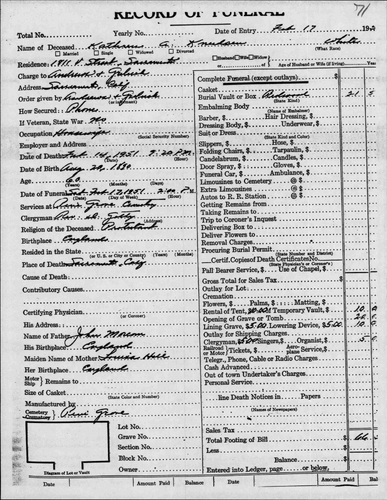 RECORD OF FUNERAL
71
Total No.
Yearly No.
Date of Entry Feb. 17 19
Name of Deceased Kathrin G.
White
Married Single Widowed Divorced
Husband/Wife or Widow
(What Race)
Residence: 1811 P Street, Sacramento
Age of Husband or Wife (if living)
Charge to Andrews &
Address Sacramento, Calif
Order given by Andrews &
How Secured: Phone
If Veteran, State War No
Occupation Housewife
(Social Security Number)
Employer and Address
Date of Death Feb. 14, 1951 9:20 P.M.
Date of Birth Aug 20, 1880
Age: 60
Date of Funeral Feb. 17, 1951 2:00 P.M.
Services at Grove
Clergyman Rev.
Religion of the Deceased Protestant
Birthplace England
Resided in the State
(or U. S. or City or County)
Place of Death Sacramento, Calif
Cause of Death:
Contributory Causes:
Certifying Physician
(or Coroner)
His Address:
Name of Father John
His Birthplace England
Maiden Name of Mother Louisa
Her Birthplace England
Motor Ship Remains to
Size of Casket
Manufactured by
Cemetery Crematory Grove
Lot No.
Grave No.
Section No.
Block No.
Owner
Diagram of Lot or Vault
Complete Funeral (except outlays)
Casket
Burial Vault or Box Redwood 21
(State Kind)
Embalming Body
Barber, Hair Dressing,
Dressing Body, Underwear,
Suit or Dress
(State Kind and Color)
Slippers, Hose,
Folding Chairs, Tarpaulin,
Candelabrum, Candles,
Door Spray, Gloves,
Funeral Car, Ambulance,
Limousines to Cemetery @
Extra Limousines @
Autos to R. R. Station @
Getting Remains from
Taking Remains to
Trip to Coroner's Inquest
Delivering Box to
Deliver Flowers to
Removal Charge
Procuring Burial Permit
(State Number and District)
Certif. Copies of Death Certificates
(State Physician's or Coroner's)
Pall Bearer Service, Use of Chapel,
Gross Total for Sales Tax
Outlay for Lot
Cremation
Flowers, Palms, Matting,
Rental of Tent, Temporary Vault, 10
Opening of Grave or Tomb 20
Lining Grave, $5.00 Lowering Device, $5.00 10
Outlay for Shipping Charges
Clergyman, $ Singers, Organist, 5
Railroad or Motor Tickets, Aeroplane Service
Telegr., Phone, Cable or Radio Charges
Cash Advanced
Out of town Undertaker's Charges
Personal Service
line Death Notices in Papers
(Names of Newspapers)
Sales Tax
Total Footing of Bill 66
Less
Entered into Ledger, page or below.
Date Amount Paid Balance Date Amount Paid Balance Date Amount Paid